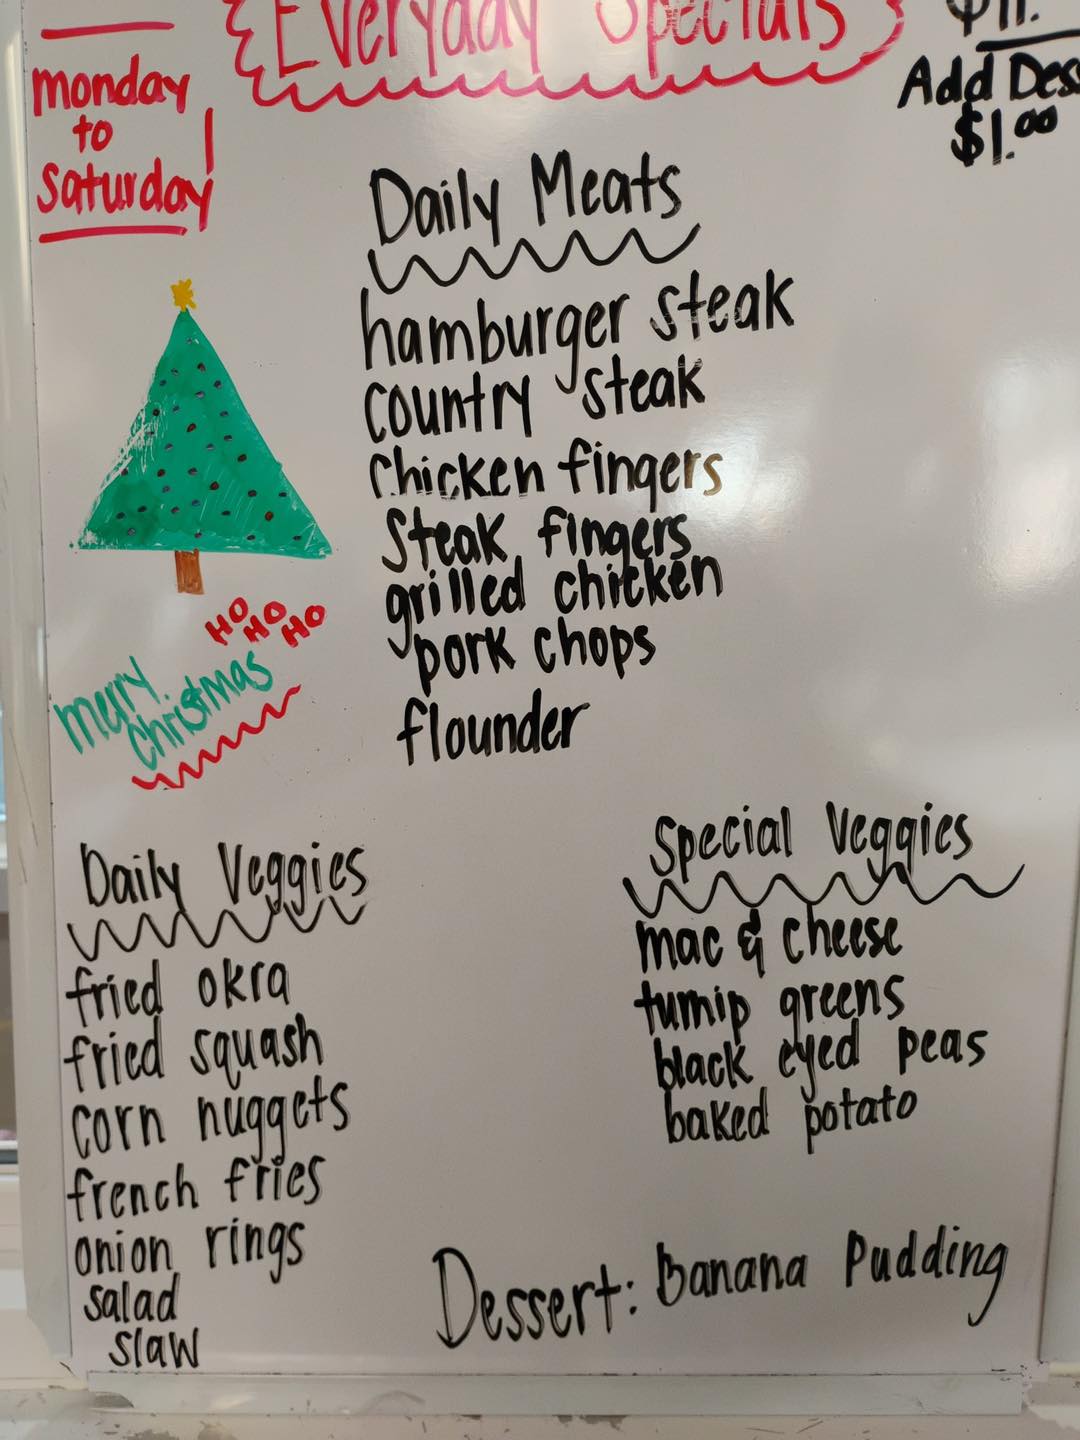 Everyday Specials
monday
to
Saturday
$11.
Add
$1.00
Daily Meats
hamburger steak
country steak
Chicken fingers
Steak fingers
grilled chicken
pork chops
flounder
HO
HO
HO
merry
christmas
Daily Veggies
fried okra
fried squash
corn nuggets
french fries
onion rings
salad
slaw
Special Veggies
mac & cheese
turnip greens
black eyed peas
baked potato
Dessert: Banana Pudding